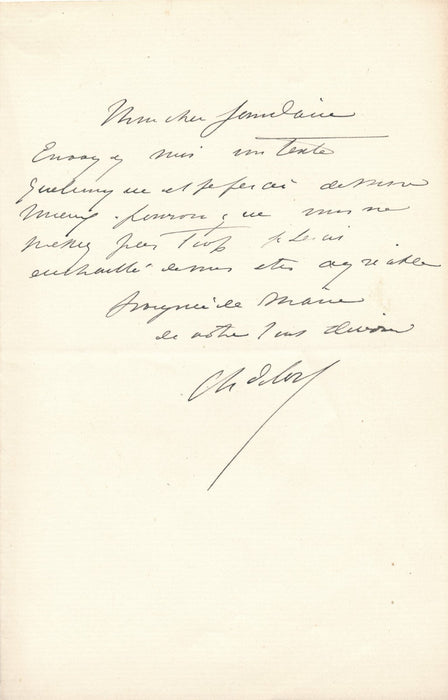 Mon cher
Envoyez moi un texte
quelconque et je ferai de mon
mieux pourvu que vous ne
pas trop je serai
enchanté de vous être agréable
Poignée de main
de votre tout dévoué
Ch Delort